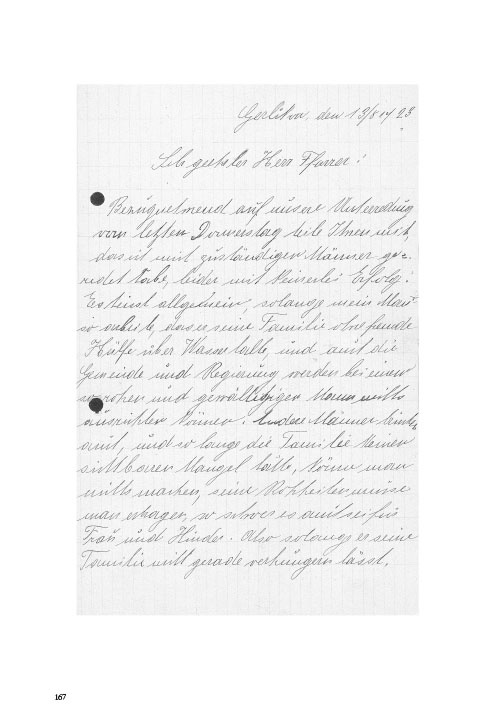 Gerlikon, den 13/8 1923
Sehr geehrter Herr Pfarrer!
Bezugnehmend auf unsere Unterredung
vom letzten Donnerstag teile Ihnen mit,
das ich mit zuständigen Männer ge-
redet habe, leider mit keinerlei Erfolg!
Es heisst allgemein, solange mein Mann
so arbeite, das er seine Familie ohne fremde
Hülfe über Wasser halte, und auch die
Gemeinde und Regierung werden bei einem
so rohen und gewalttätigen Mann nichts
ausrichten können. Andere Männer
auch, und so lange die Familie keinen
sichtbaren Mangel hätte, könne man
nichts machen, seine Rohheiten müsse
man ertragen, so schwer es auch sei für
Frau und Kinder. Also solange er seine
Familie nicht gerade verhungern lässt.
167